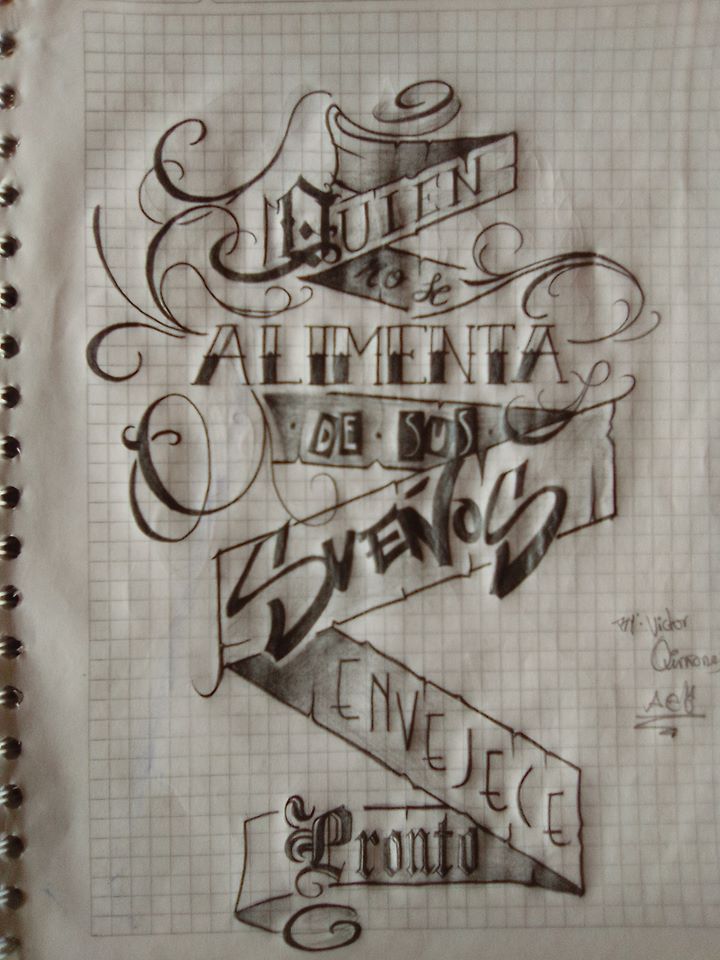 Quien
no se
ALIMENTA
DE · SUS
SUEÑOS
ENVEJECE
Pronto
Victor